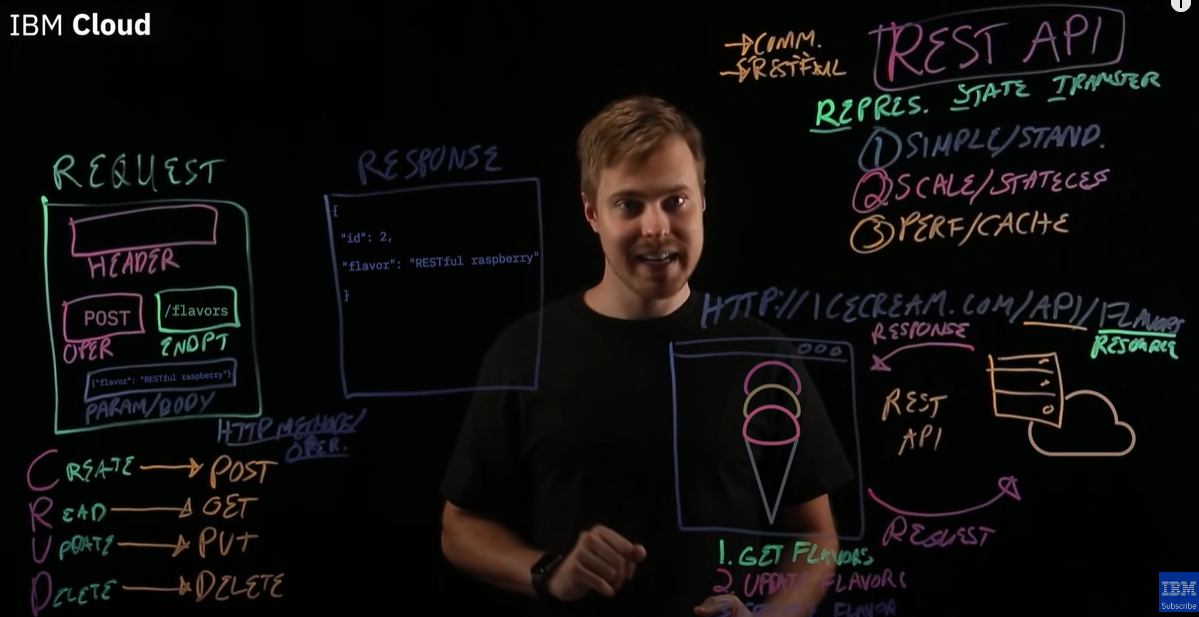 IBM Cloud
→ COMM.
→ RESTFUL
REST API
REPRES. STATE TRANSFER
① SIMPLE/STAND.
② SCALE/STATELESS
③ PERF/CACHE
REQUEST
HEADER
POST
OPER
/flavors
ENDPT
{"flavor": "RESTful raspberry"}
PARAM/BODY
RESPONSE
{
"id": 2,
"flavor": "RESTful raspberry"
}
HTTP METHODS/
OPER.
CREATE → POST
READ → GET
UPDATE → PUT
DELETE → DELETE
HTTP://ICECREAM.COM/API/FLAVORS
RESOURCE
RESPONSE
REST
API
REQUEST
1. GET FLAVORS
2. UPDATE FLAVORS
FLAVOR
IBM
Subscribe